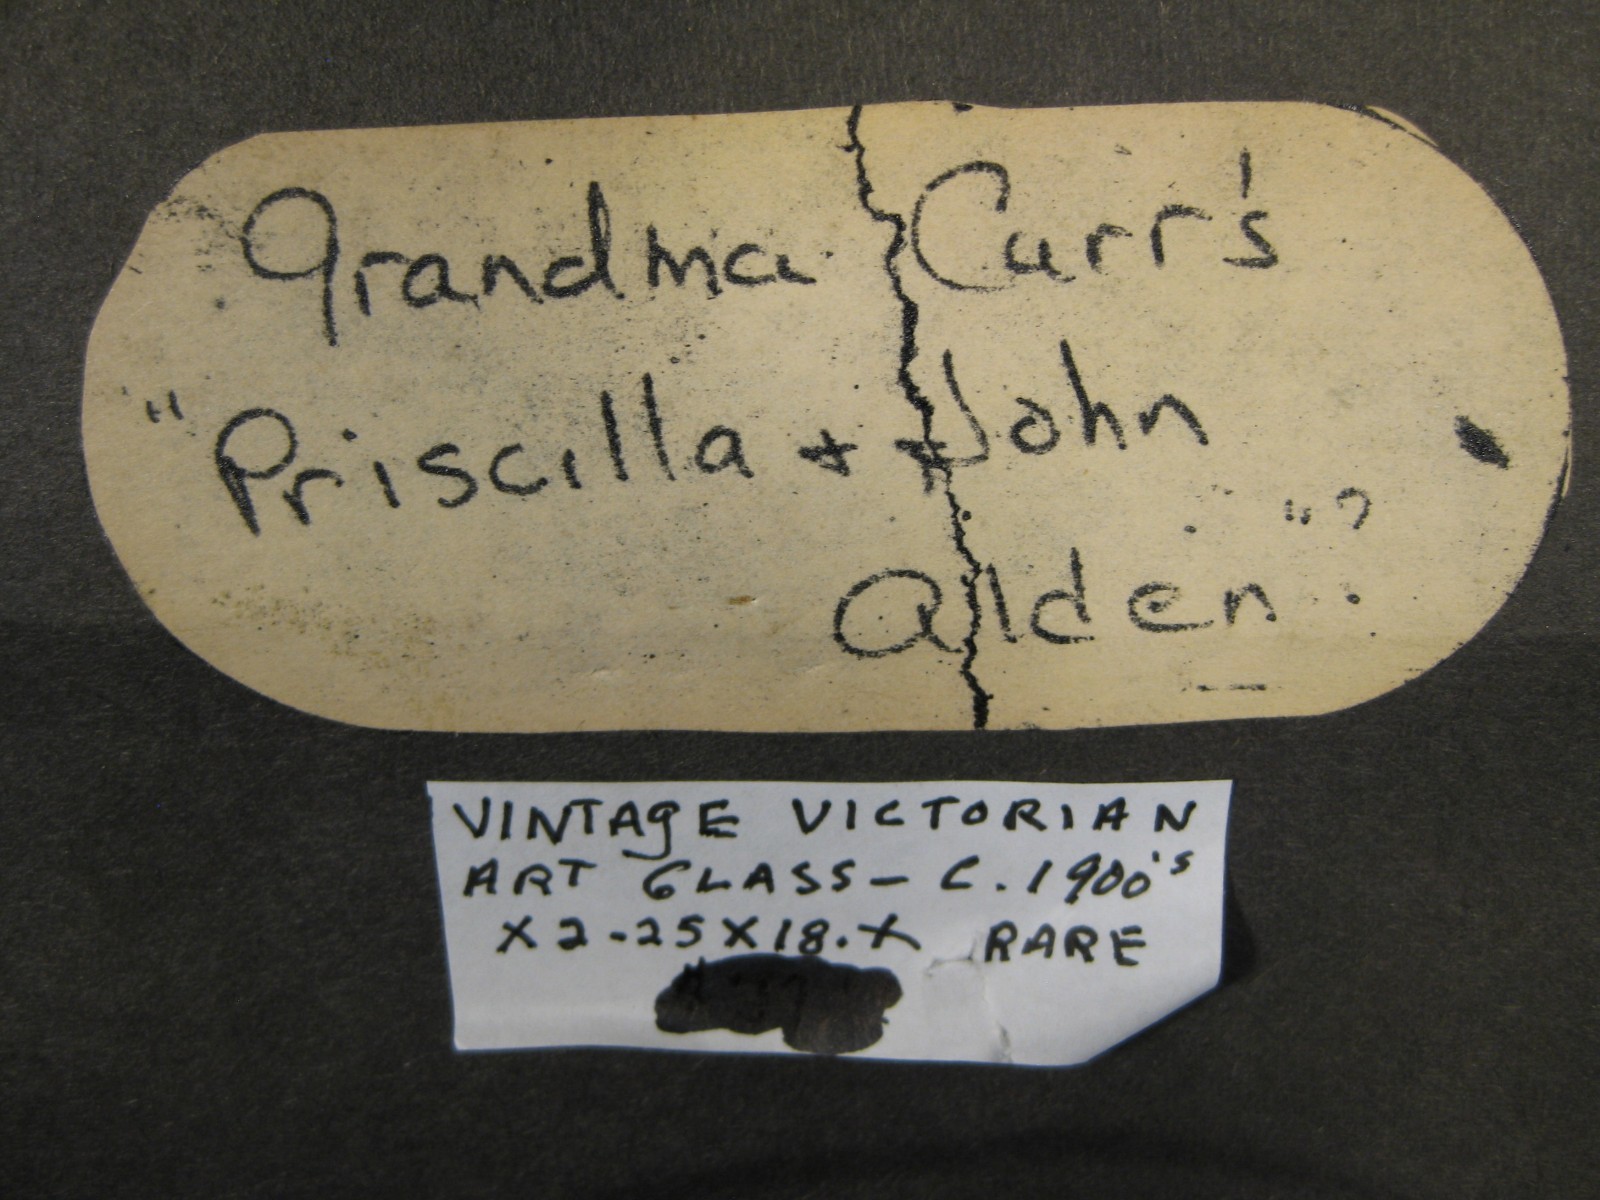 Grandma Carr's
"Priscilla + John
Alden"?
VINTAGE VICTORIAN
ART GLASS - C. 1900's
X 2-25X18.X RARE